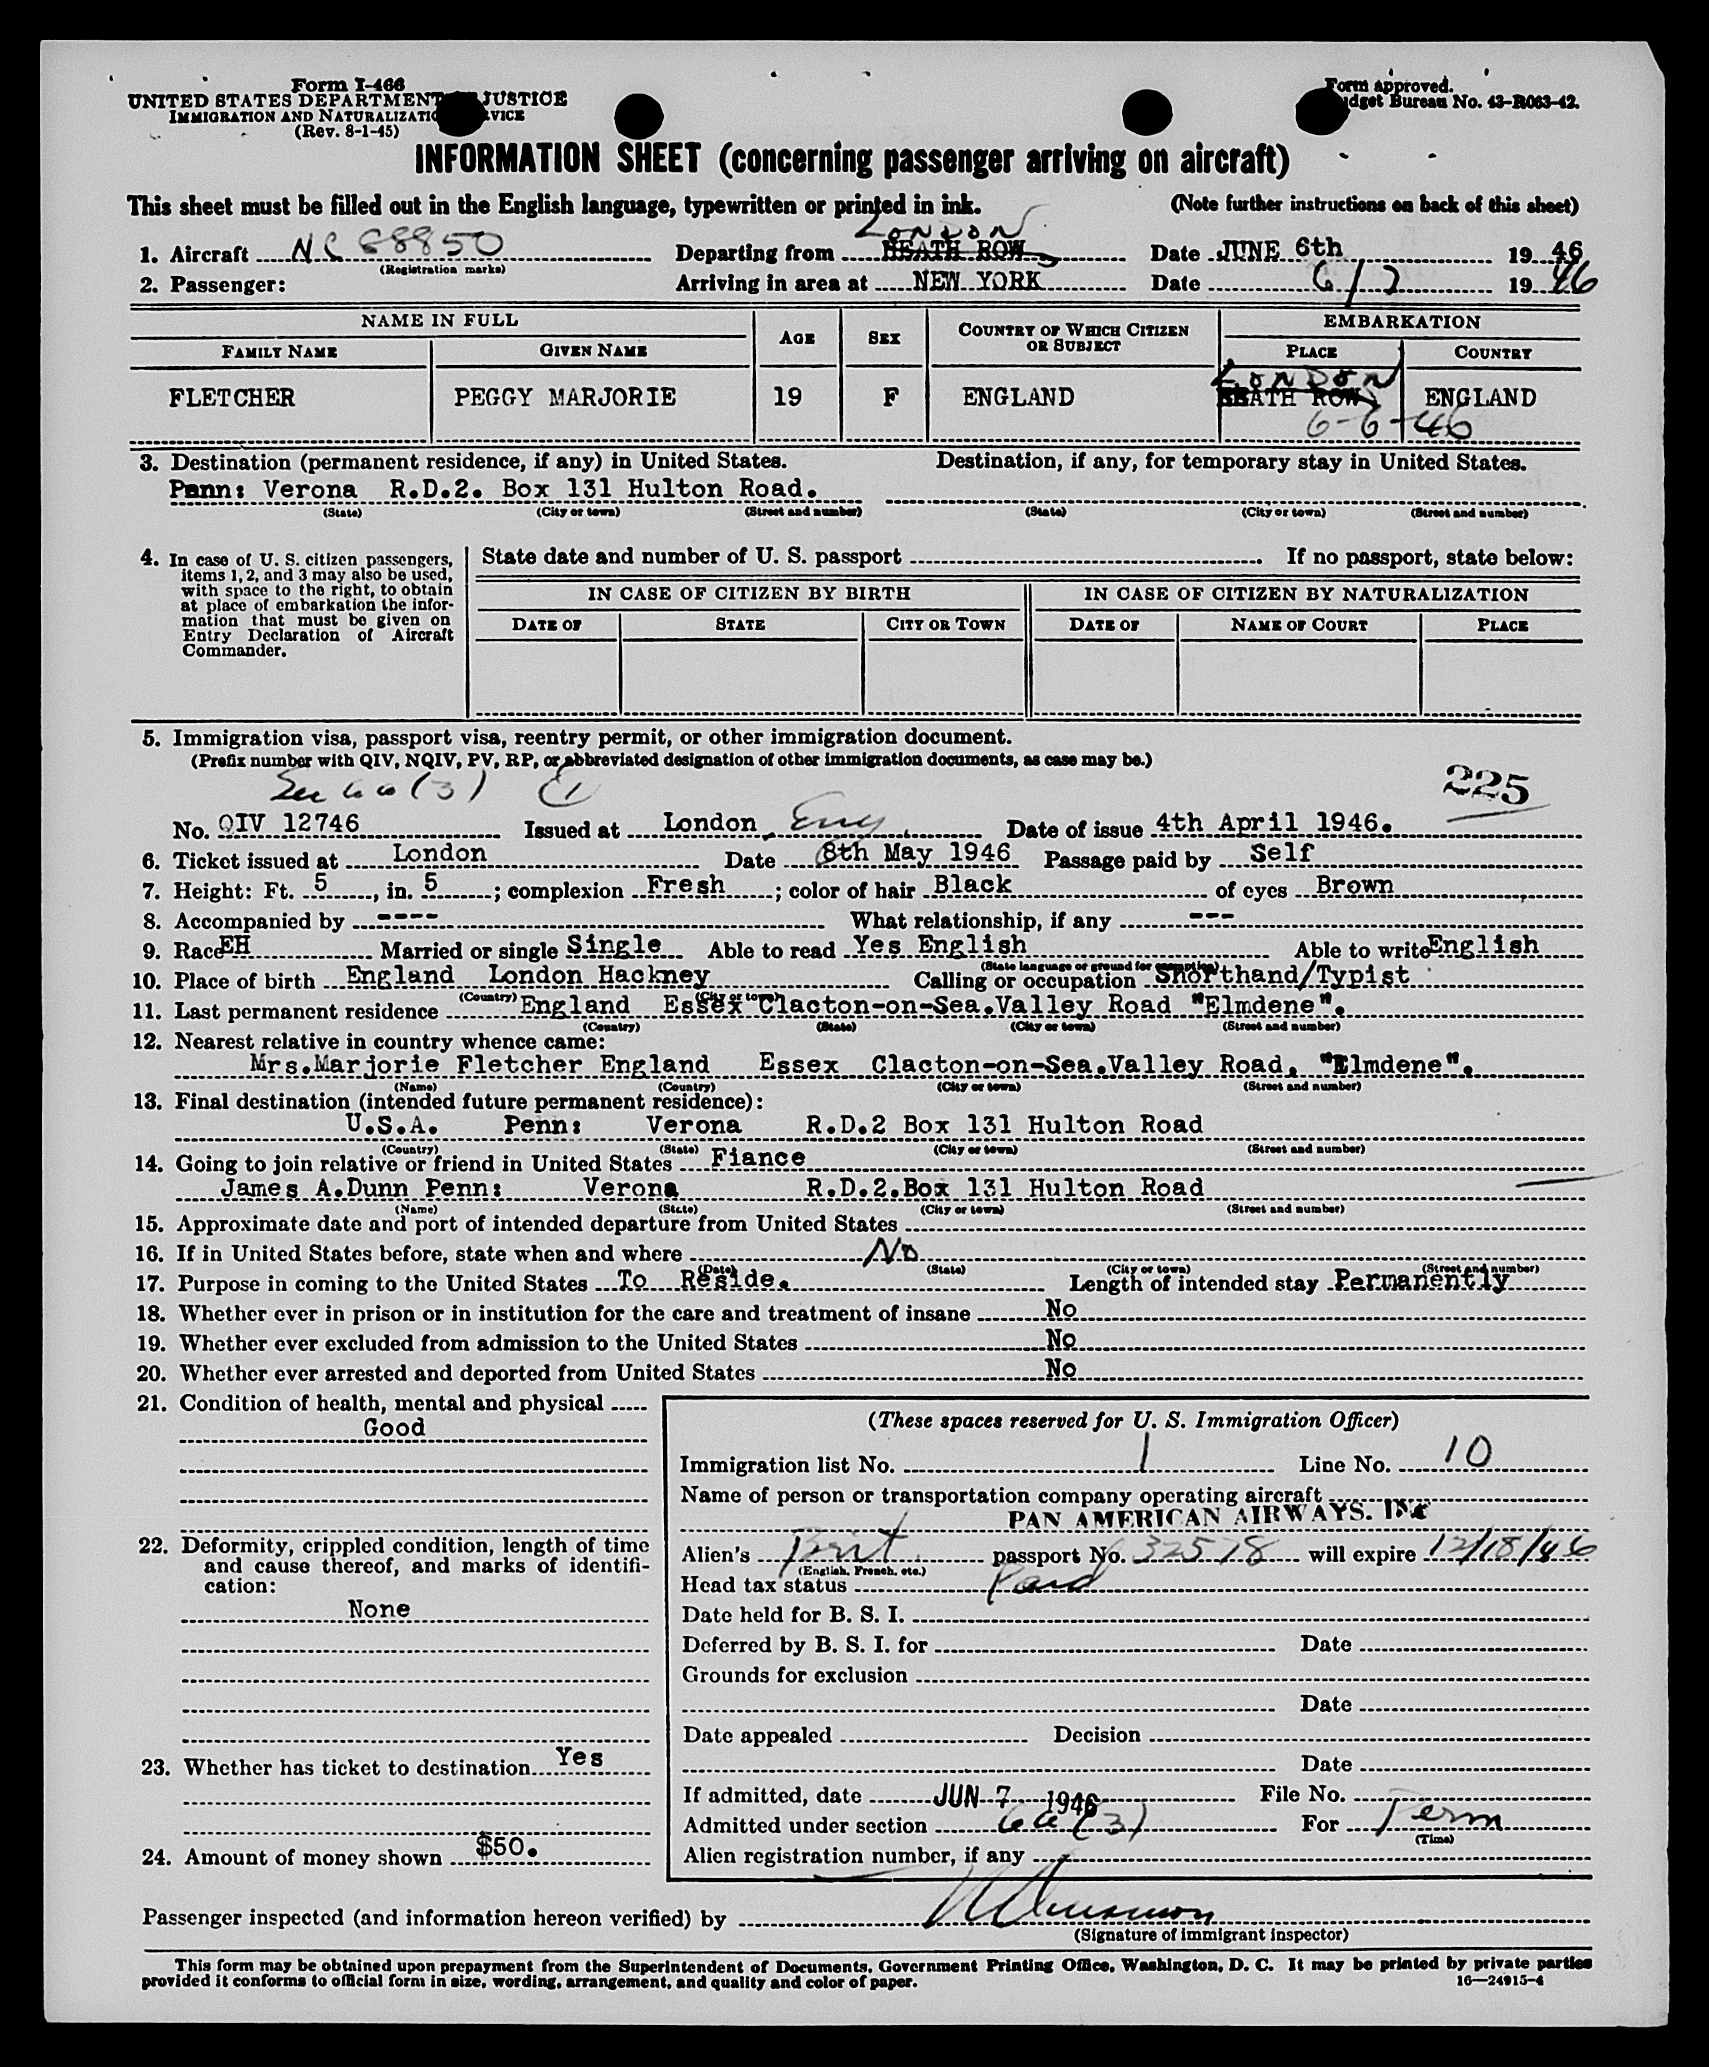 Form I-466
UNITED STATES DEPARTMENT JUSTICE
IMMIGRATION AND NATURALIZATION
(Rev. 8-1-45)
Form approved.
Budget Bureau No. 43-R063-42.
INFORMATION SHEET (concerning passenger arriving on aircraft)
This sheet must be filled out in the English language, typewritten or printed in ink. (Note further instructions on back of this sheet)
LONDON
1. Aircraft NC 88850 Departing from HEATH ROW Date JUNE 6th 19 46
(Registration marks)
2. Passenger: Arriving in area at NEW YORK Date 6/7 19 46
NAME IN FULL AGE SEX COUNTRY OF WHICH CITIZEN OR SUBJECT EMBARKATION
FAMILY NAME GIVEN NAME PLACE COUNTRY
LONDON
FLETCHER PEGGY MARJORIE 19 F ENGLAND HEATH ROW ENGLAND
6-6-46
3. Destination (permanent residence, if any) in United States. Destination, if any, for temporary stay in United States.
Penn: Verona R.D.2. Box 131 Hulton Road.
(State) (City or town) (Street and number) (State) (City or town) (Street and number)
4. In case of U. S. citizen passengers, items 1, 2, and 3 may also be used, with space to the right, to obtain at place of embarkation the information that must be given on Entry Declaration of Aircraft Commander.
State date and number of U. S. passport If no passport, state below:
IN CASE OF CITIZEN BY BIRTH IN CASE OF CITIZEN BY NATURALIZATION
DATE OF STATE CITY OR TOWN DATE OF NAME OF COURT PLACE
5. Immigration visa, passport visa, reentry permit, or other immigration document.
(Prefix number with QIV, NQIV, PV, RP, or abbreviated designation of other immigration documents, as case may be.)
Sec 6a(3)
225
No. QIV 12746 Issued at London, Eng. Date of issue 4th April 1946.
6. Ticket issued at London Date 8th May 1946 Passage paid by Self
7. Height: Ft. 5, in. 5; complexion Fresh; color of hair Black of eyes Brown
8. Accompanied by ---- What relationship, if any ---
9. Race EH Married or single Single Able to read Yes English Able to write English
(State language or ground for exemption)
10. Place of birth England London Hackney Calling or occupation Shorthand/Typist
(Country) (City or town)
11. Last permanent residence England Essex Clacton-on-Sea.Valley Road "Elmdene".
(Country) (State) (City or town) (Street and number)
12. Nearest relative in country whence came:
Mrs.Marjorie Fletcher England Essex Clacton-on-Sea.Valley Road, "Elmdene".
(Name) (Country) (City or town) (Street and number)
13. Final destination (intended future permanent residence):
U.S.A. Penn: Verona R.D.2 Box 131 Hulton Road
(Country) (State) (City or town) (Street and number)
14. Going to join relative or friend in United States Fiance
James A.Dunn Penn: Verona R.D.2.Box 131 Hulton Road
(Name) (State) (City or town) (Street and number)
15. Approximate date and port of intended departure from United States
16. If in United States before, state when and where No
(Date) (State) (City or town) (Street and number)
17. Purpose in coming to the United States To Reside. Length of intended stay Permanently
18. Whether ever in prison or in institution for the care and treatment of insane No
19. Whether ever excluded from admission to the United States No
20. Whether ever arrested and deported from United States No
21. Condition of health, mental and physical
Good
22. Deformity, crippled condition, length of time and cause thereof, and marks of identification:
None
23. Whether has ticket to destination Yes
24. Amount of money shown $50.
(These spaces reserved for U. S. Immigration Officer)
Immigration list No. 1 Line No. 10
Name of person or transportation company operating aircraft
PAN AMERICAN AIRWAYS. INC
Alien's Brit. passport No. 32578 will expire 12/18/46
(English, French, etc.)
Head tax status Paid
Date held for B. S. I.
Deferred by B. S. I. for Date
Grounds for exclusion
Date
Date appealed Decision
Date
If admitted, date JUN 7 1946 File No.
Admitted under section 6a(3) For Perm
(Time)
Alien registration number, if any
Passenger inspected (and information hereon verified) by
(Signature of immigrant inspector)
This form may be obtained upon prepayment from the Superintendent of Documents, Government Printing Office, Washington, D. C. It may be printed by private parties
provided it conforms to official form in size, wording, arrangement, and quality and color of paper. 16—24915-4